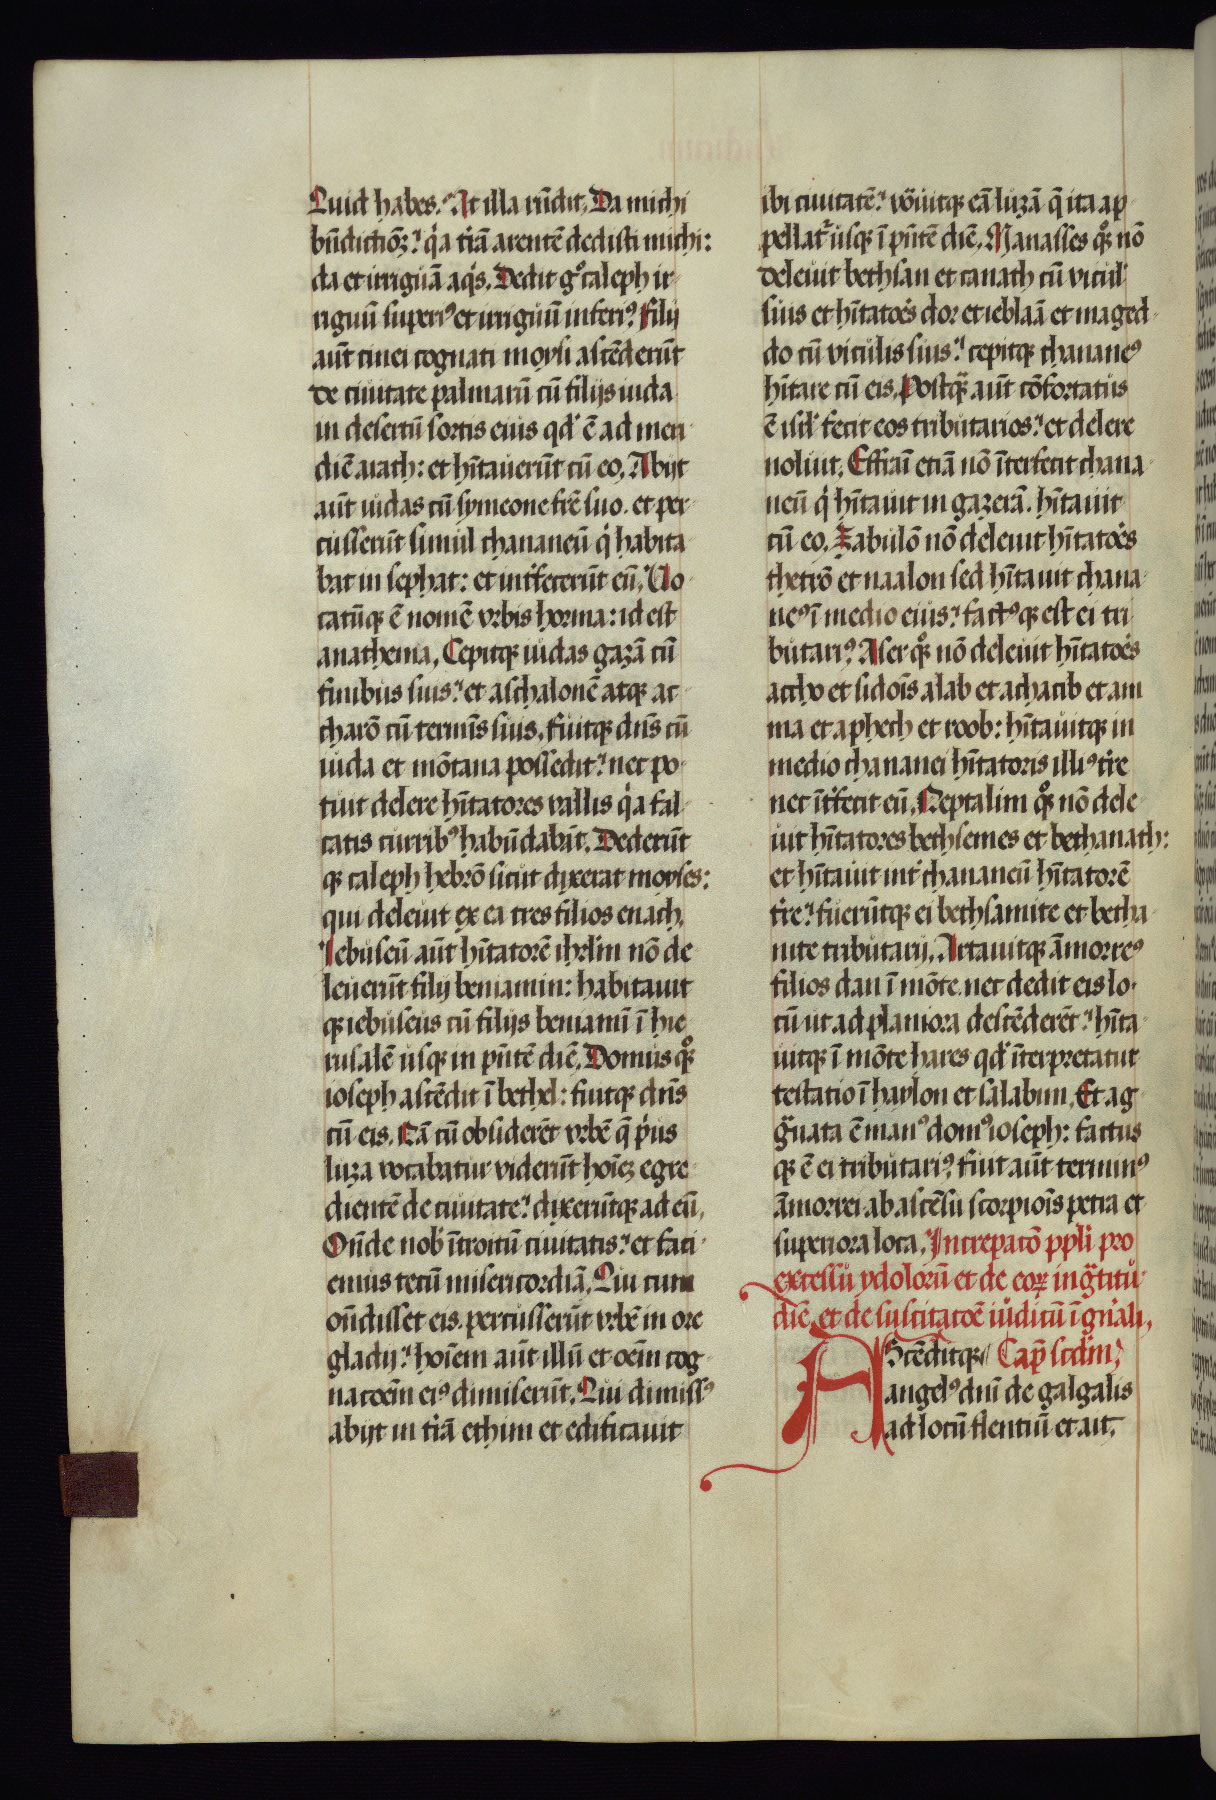 Quid habes? At illa rn̄dit, Da michi
bn̄dictiōꝫ? qͥa t̄rā arentē dedisti michi:
da et irriguā aqͥs. Dedit gͦ caleph ir
riguū superiꝰ et irriguū inferiꝰ. Filij
aūt cinei cognati moysi ascēderūt
de ciuitate palmarū cū filijs iuda
in desertū sortis eius qd̕ ē ad meri
diē arath: et hītauerūt cū eo. Abijt
aūt iudas cū symeone fr̄e suo. et per
cusserūt simul chananeū qͥ habita
bat in sephat: et int̄fecerūt eū. Uo
catūqꝫ ē nomē vrbis horma: id est
anathema. Cepitqꝫ iudas gazā cū
finibus suis? et aschalonē atqꝫ ac
charō cū termīs suis. fuitqꝫ dn̄s cū
iuda et mōtana possedit? nec po
tuit delere hītatores vallis qͥa fal
catis curribꝰ habūdabūt. Dederūt
qꝫ caleph hebrō sicut dixerat moyses:
qui deleuit ex ea tres filios enach.
Iebuseū aūt hītatorē ihrl̄m nō de
leuerūt filij beniamin: habitauit
qꝫ iebuseus cū filijs beniamī ī hie
rusalē usqꝫ in pn̄tē diē. Domus qͦꝫ
ioseph ascēdit ī bethel: fuitqꝫ dn̄s
cū eis. Nā cū obsiderēt vrbē q̄ pͥus
luza vocabatur viderūt hoīeꝫ egre
dientē de ciuitate? dixerūtqꝫ ad eū.
On̄de nob̕ ītroitū ciuitatis? et faci
emus tecū misericordiā. Qui cum
on̄disset eis. percusserūt vrbē in ore
gladij? hoīem aūt illū et oēm cog
nacoēm eiꝰ dimiserūt. Qui dimissꝰ
abijt in t̄rā ethim et edificauit
ibi ciuitatē? vo̅uitqꝫ eā luzā q̄ ita ap
pellat̕ usqꝫ ī pn̄tē diē. Manasses qͦꝫ nō
deleuit bethsan et tanach cū vicul̕
suis et hītatoēs dor et ieblaā et maged
do cū viculis suis? cepitqꝫ chananeꝰ
hītare cū eis. Postqͣꝫ aūt cōfortatus
ē isrl̕ fecit eos tributarios? et delere
noluit. Effraī etiā nō īterfecit chana
neū qͥ hītauit in gazerā. hītauit
cū eo. Zabulō nō deleuit hītatoēs
thetrō et naalon sed hītauit chana
neꝰ ī medio eius? factꝰqꝫ est ei tri
butariꝰ. Aser qͦꝫ nō deleuit hītatoēs
accho et sidoīs alab et achacib et am
ma et aphech et roob: hītauitqꝫ in
medio chananei hītatoris illiꝰ t̄re
nec īt̄fecit eū. Neptalim qͦꝫ nō dele
uit hītatores bethsemes et bethanath:
et hītauit int̕ chananeū hītatorē
t̄re? fuerūtqꝫ ei bethsamite et betha
nite tributarij. Artauitqꝫ āmorreꝰ
filios dan ī mōte. nec dedit eis lo
cū ut ad planiora descēderēt? hīta
uitqꝫ ī mōte hares qd̕ īterpretatur
testatio ī haylon et salabim. Et ag
gͣuata ē manꝰ domꝰ ioseph: factus
qꝫ ē ei tributariꝰ. fuit aūt terminꝰ
āmorrei ab ascēsu scorpioīs petra et
superiora loca. Increpatō ppl̕i pro
excessu ydolorū et de eoꝝ ingͣtitu
diē et de suscitatoē iudicū ī gn̄ali.
AScēditqꝫ Cap̄ scd̄m
angelꝰ dn̄i de galgalis
ad locū flentiū et ait.